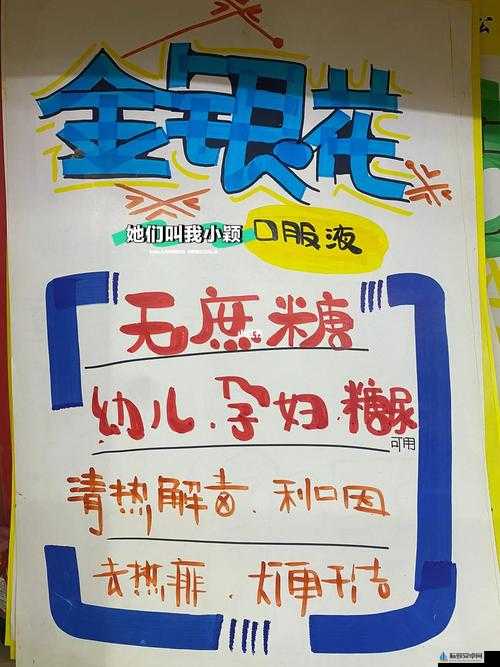 金银花
她们叫我小颖
口服液
无蔗糖
幼儿.孕妇.糖尿
可用
清热解毒.利口因
去热痱.大便干洁